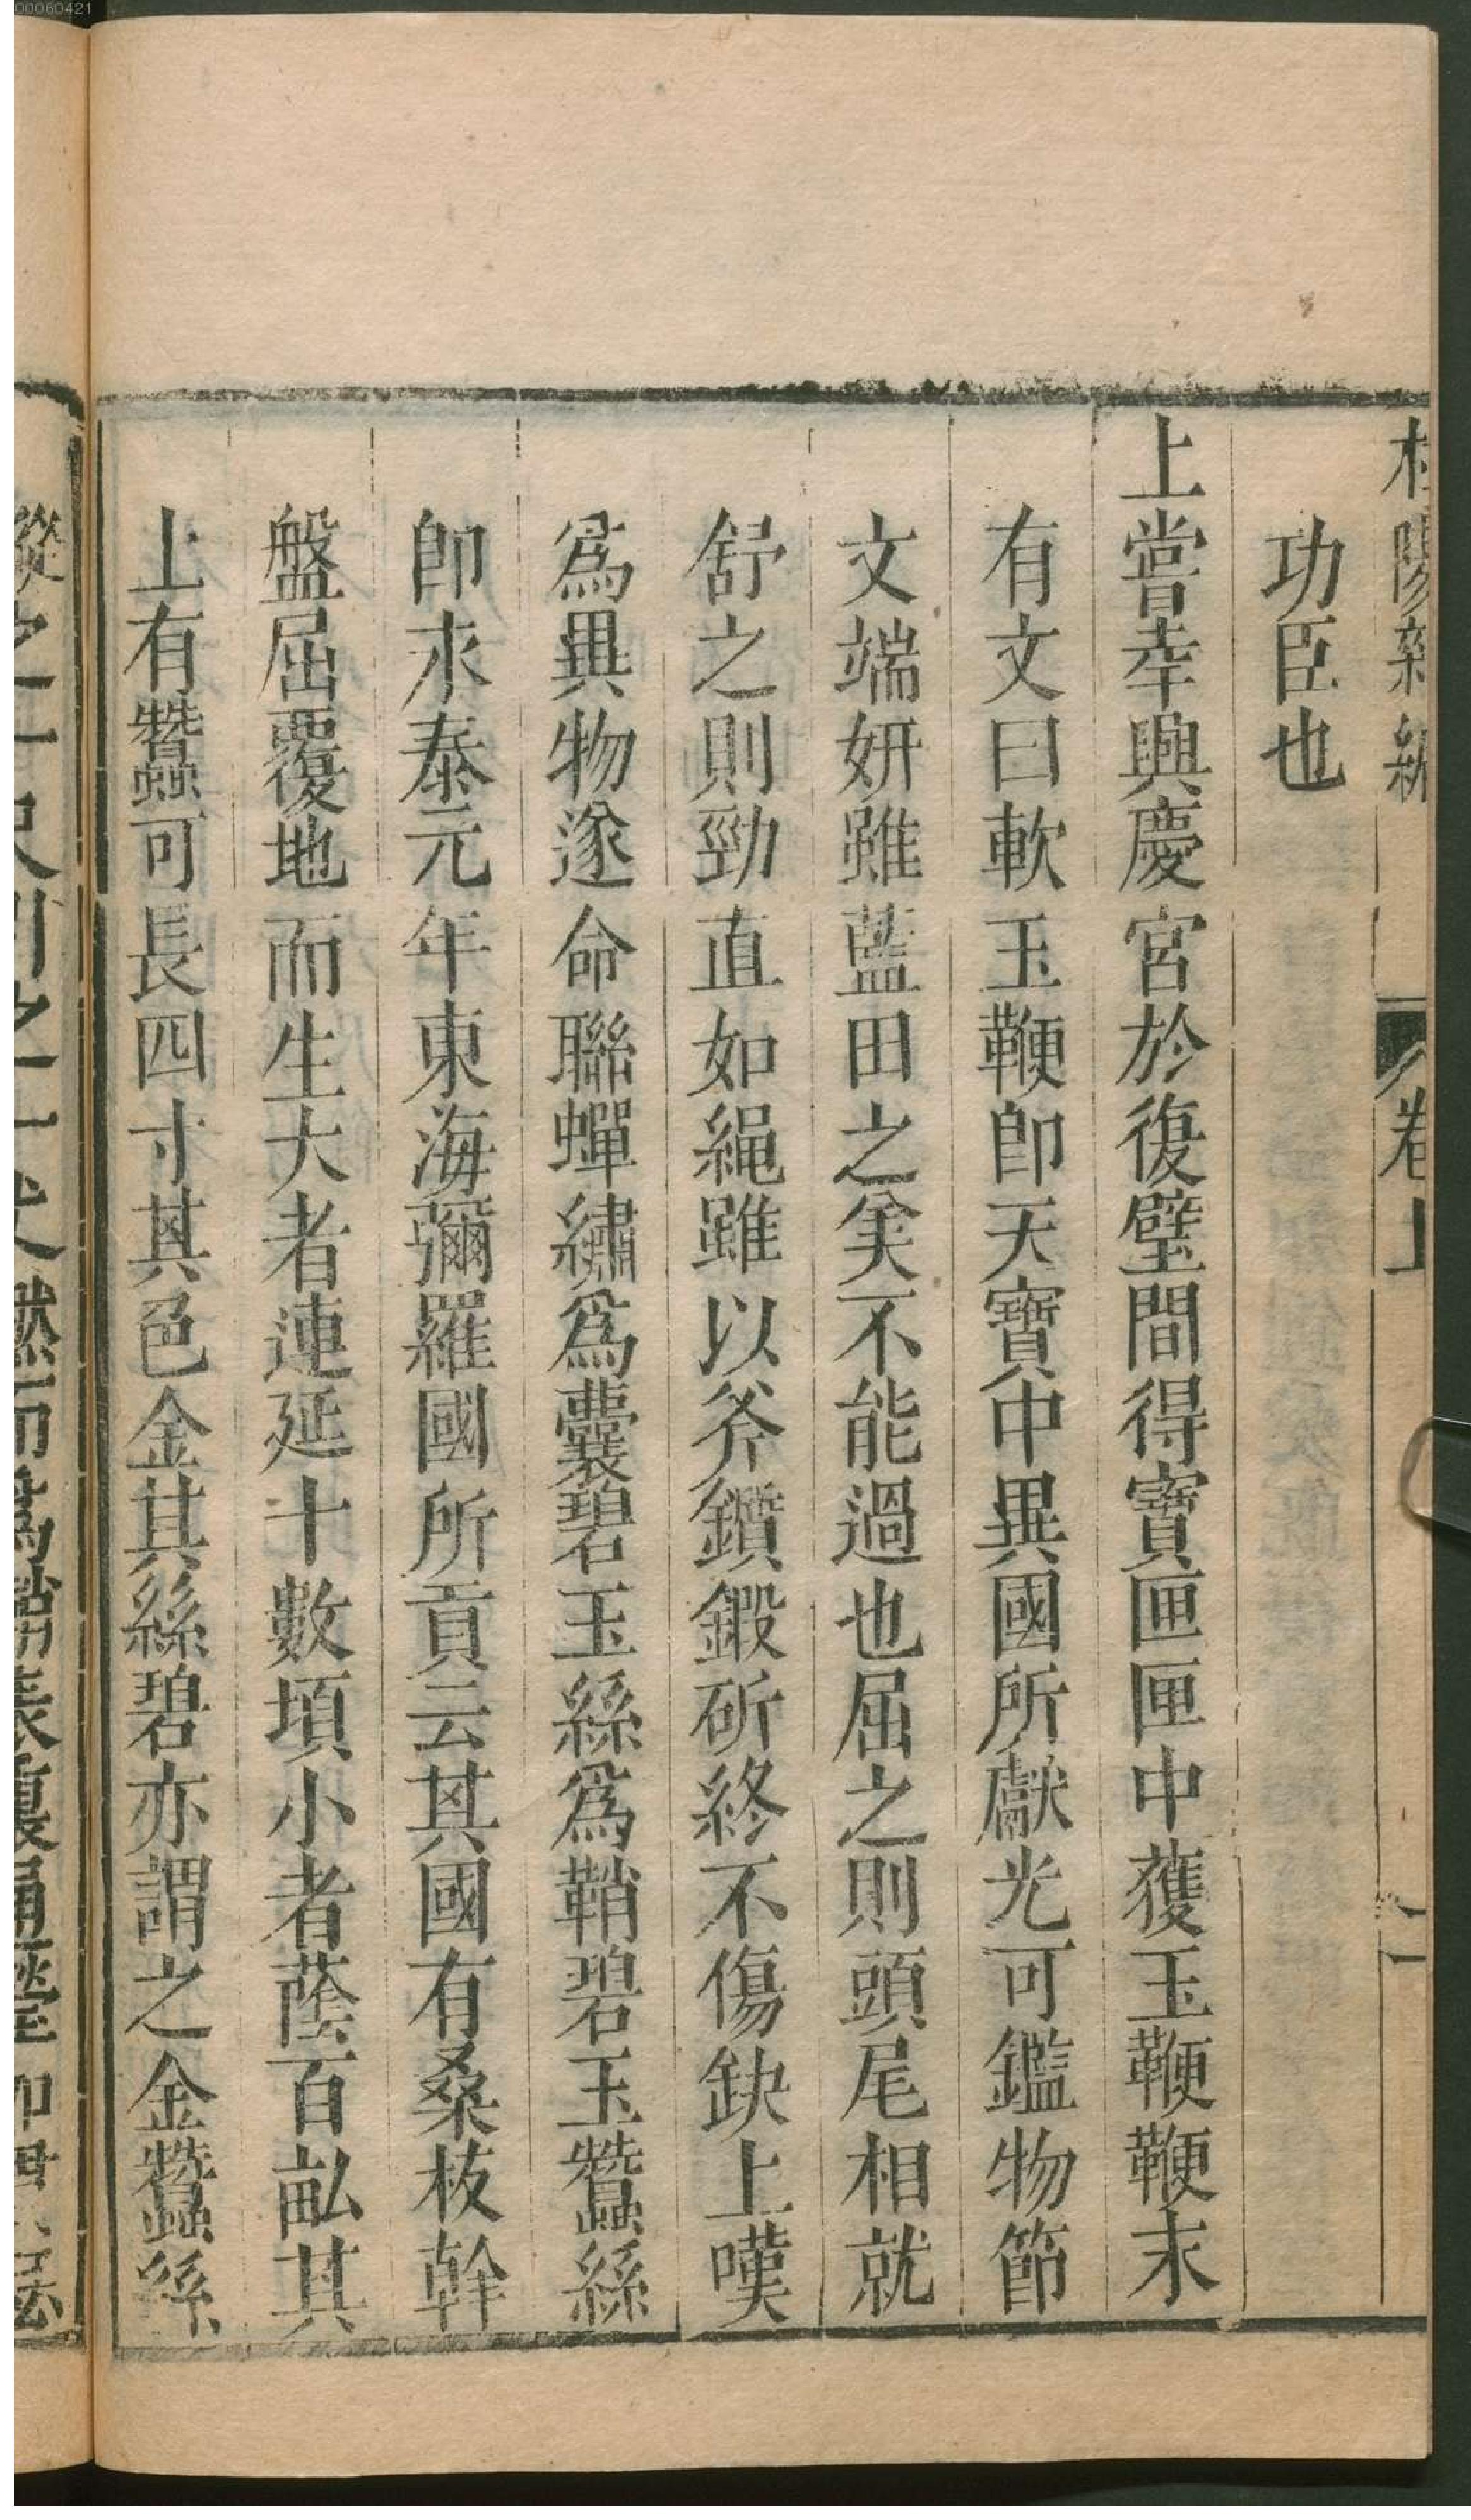 00060421
杜陽雜編
卷上
功臣也
上嘗幸興慶宮於復壁間得寶匣匣中獲玉鞭鞭末
有文曰軟玉鞭即天寶中異國所獻光可鑑物節
文端妍雖藍田之美不能過也屈之則頭尾相就
舒之則勁直如繩雖以斧鑕鍛斫終不傷缺上嘆
爲異物遂命聯蟬繡爲囊碧玉絲爲鞘碧玉蠶絲
即永泰元年東海彌羅國所貢云其國有桑枝幹
盤屈覆地而生大者連延十數頃小者蔭百畝其
上有蠶可長四寸其色金其絲碧亦謂之金蠶絲